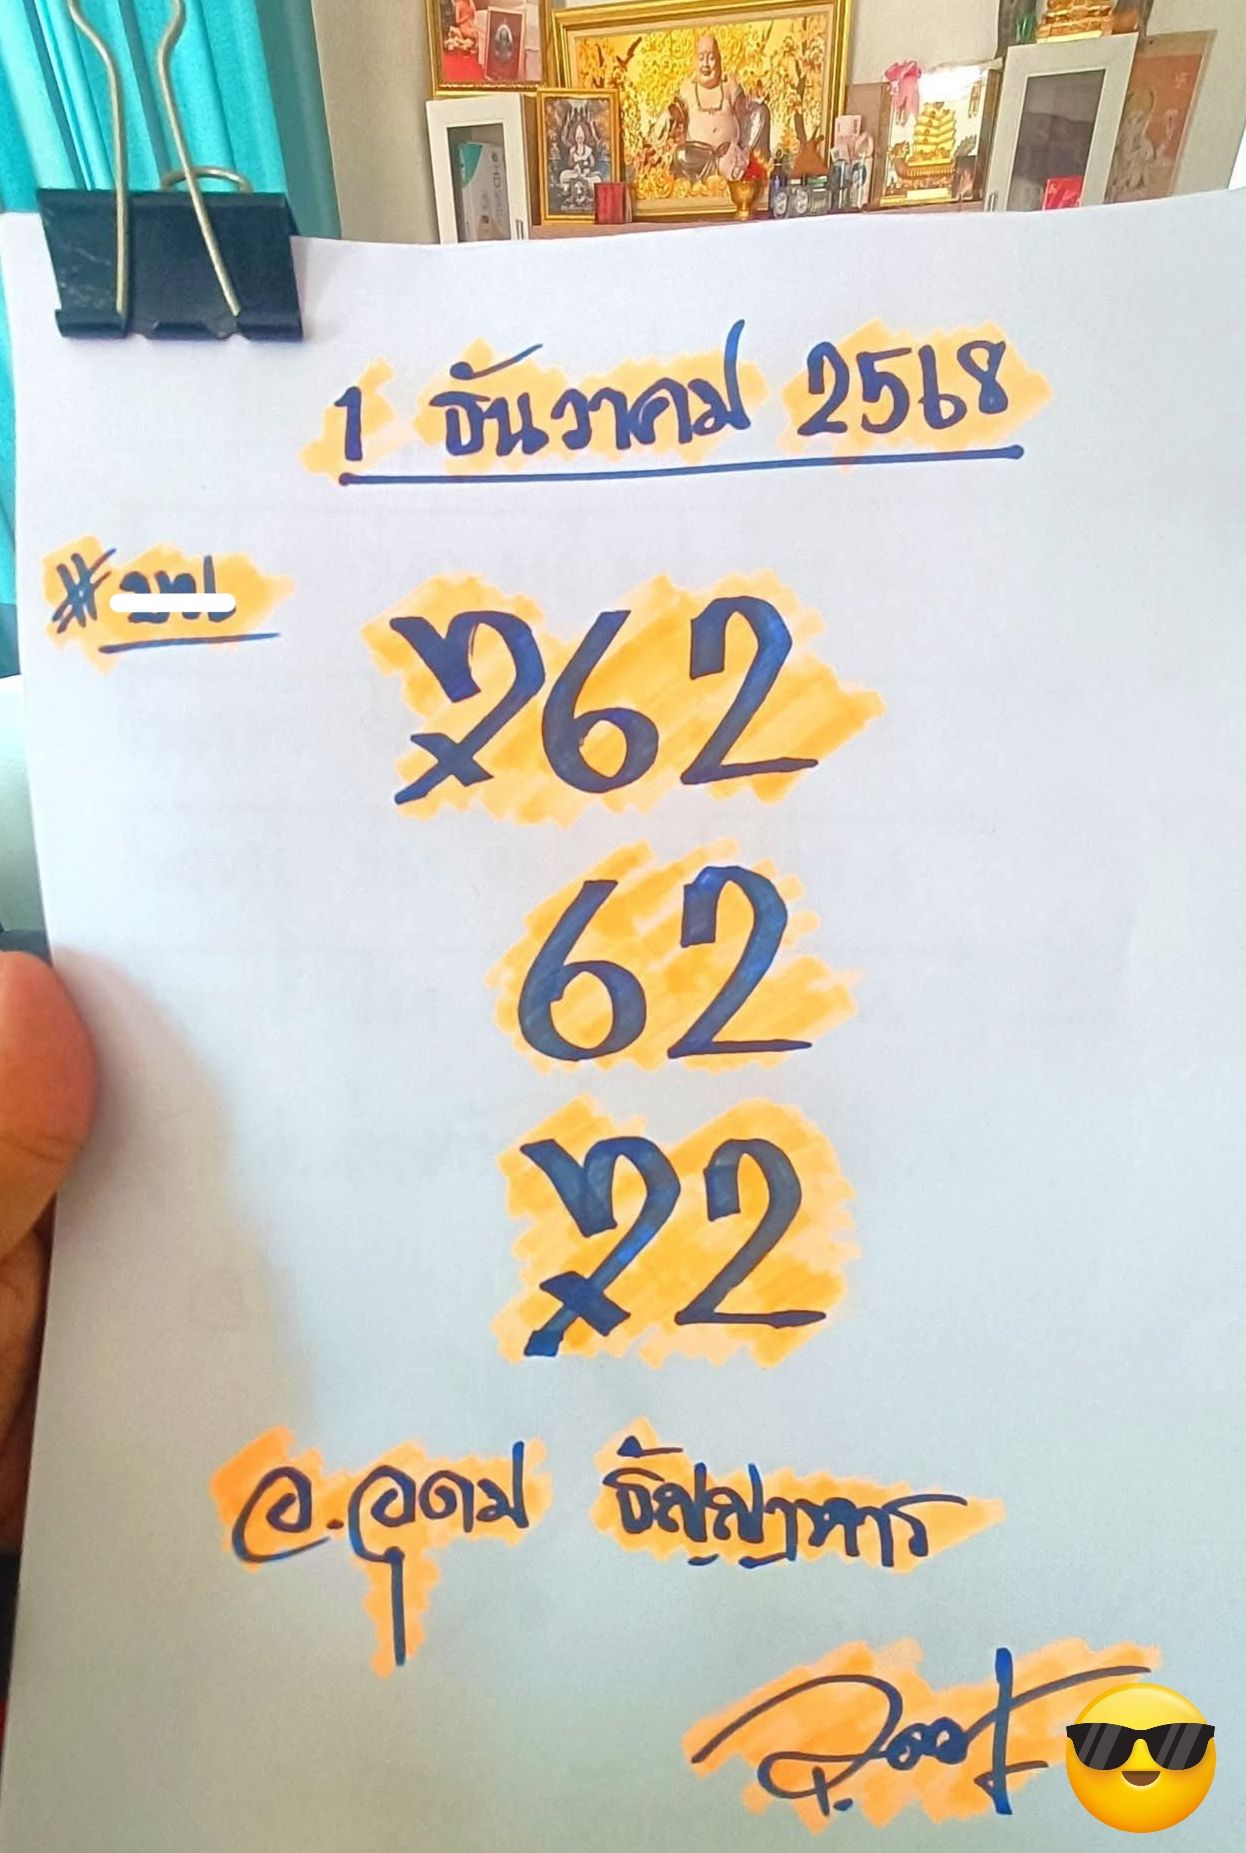 1 ธันวาคม 2568
262
62
22
อ.อุดม ธัญญาหาร